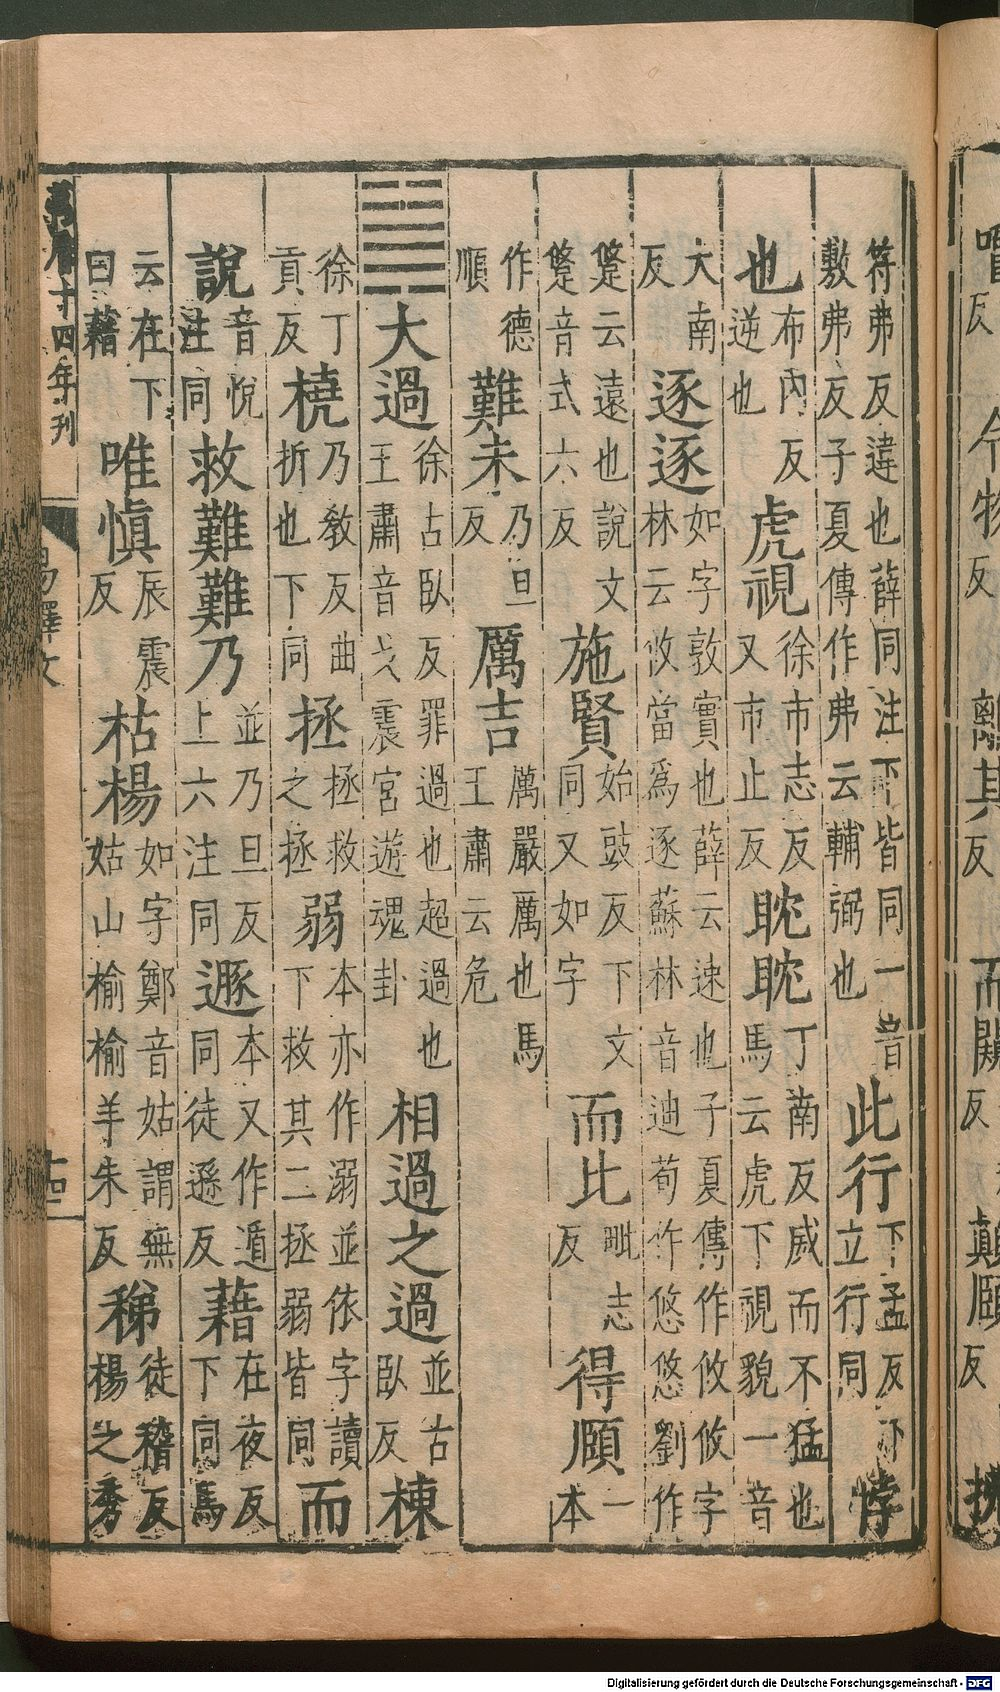 符弗反違也薛同注下皆同一音敷弗反子夏傳作弗云輔弼也此行下孟反下立行同悖
也布內反逆也虎視徐市志反又市止反眈眈丁南反威而不猛也馬云虎下視貌一音
大南反逐逐如字敦實也薛云速也子夏傳作攸攸字林云攸當爲逐蘇林音迪荀作悠悠劉作
跾云遠也說文跾音式六反施賢始豉反下文同又如字而比毗志反得頤一本
作德順難未乃旦反厲吉厲嚴厲也馬王肅云危
䷛大過徐古臥反罪過也超過也王肅音戈震宮遊魂卦相過之過並古臥反棟
徐丁貢反橈乃教反曲折也下同拯拯救之拯弱本亦作溺並依字讀下救其二拯弱皆同而
說音悅注同救難難乃並乃旦反上六注同遯本又作遁同徒遜反藉在夜反下同馬
云在下曰藉唯慎辰震反枯楊如字鄭音姑謂無姑山榆榆羊朱反稊徒稽反楊之秀
萬曆十四年刊 易釋文 十四
Digitalisierung gefördert durch die Deutsche Forschungsgemeinschaft - DFG